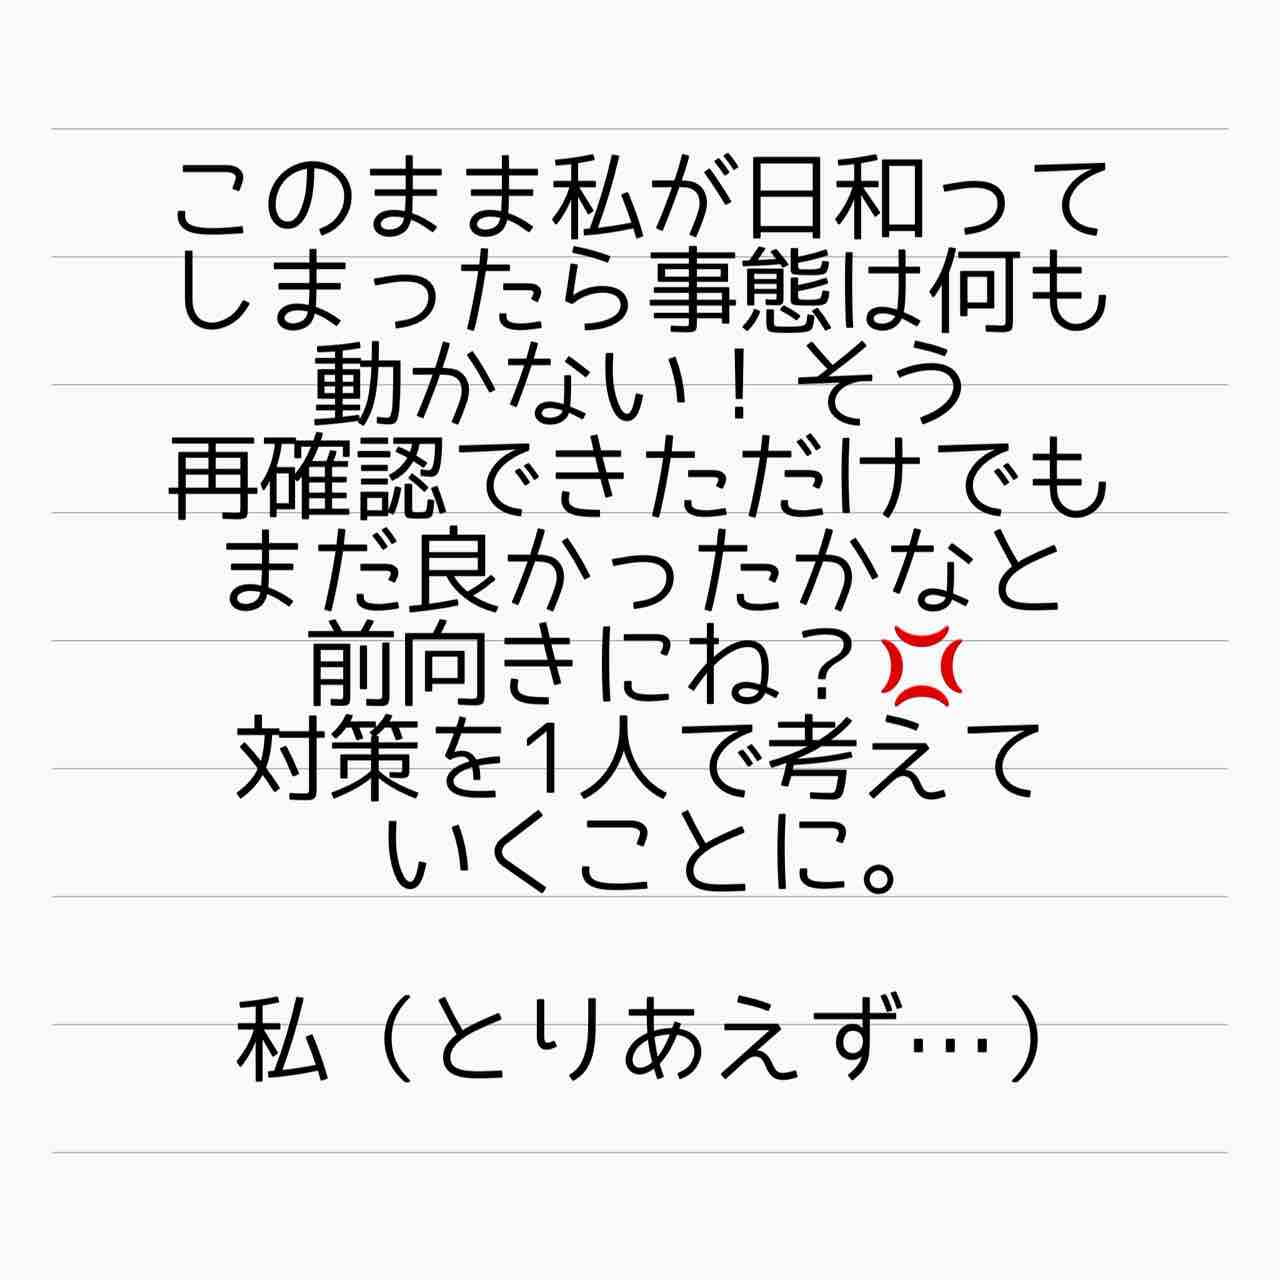 このまま私が日和って
しまったら事態は何も
動かない！そう
再確認できただけでも
まだ良かったかなと
前向きにね？💢
対策を1人で考えて
いくことに。
私（とりあえず…）